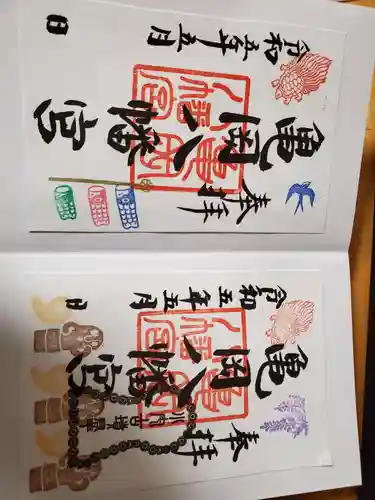 奉拝
亀岡八幡宮
令和五年五月 日
奉拝
亀岡八幡宮
令和五年五月 日